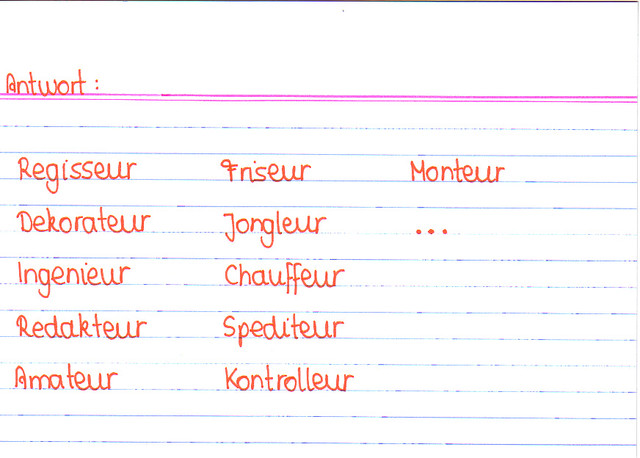 Antwort :
Regisseur Friseur Monteur
Dekorateur Jongleur ...
Ingenieur Chauffeur
Redakteur Spediteur
Amateur Kontrolleur